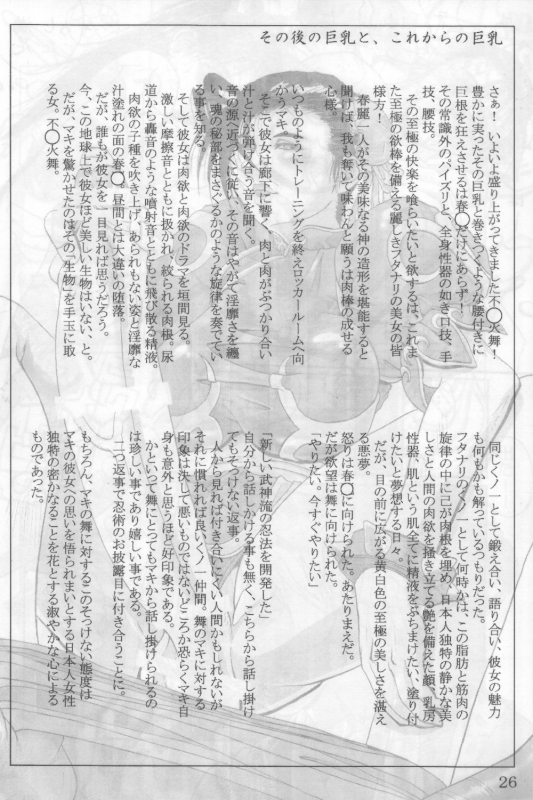 その後の巨乳と、これからの巨乳
さぁ！　いよいよ盛り上がってきました不◯火舞！
豊かに実ったその巨乳と巻きつくような腰付きに
巨根を狂えさせるは春◯だけにあらず！
その常識外のパイズリと、全身性器の如き口技、手
技、腰技。
その至極の快楽を喰らいたいと欲するは、これま
た至極の欲棒を備える麗しきフタナリの美女の皆
様方！
春麗一人がその美味なる神の造形を堪能すると
聞けば、我も奪いて味わんと願うは肉棒の成せる
心様。
いつものようにトレーニングを終えロッカールームへ向
かうマキ。
そこで彼女は廊下に響く、肉と肉がぶつかり合い
汁と汁が弾け合う音を聞く。
音の源に近づくに従い、その音はやがて淫靡さを纏
い、魂の秘部をまさぐるかのような旋律を奏でてい
る事を知る。
そして彼女は肉欲と肉欲のドラマを垣間見る。
激しい摩擦音とともに扱かれ、絞られる肉根。尿
道から轟音のような噴射音とともに飛び散る精液。
肉欲の子種を吹き上げ、あられもない姿と淫靡な
汁塗れの面の春◯。昼間とは大違いの堕落。
だが、誰もが彼女を一目見れば思うだろう。
今、この地球上で彼女ほど美しい生物はいない、と。
だが、マキを驚かせたのはその「生物」を手玉に取
る女。不◯火舞。
同じくノ一として鍛え合い、語り合い、彼女の魅力
も何もかも解っているつもりだった。
フタナリのくノ一として何時かは、この脂肪と筋肉の
旋律の中に己が肉根を埋め、日本人独特の静かな美
しさと人間の肉欲を掻き立てる艶を備えた顔、乳房
性器、肌という肌全てに精液をぶちまけたい、塗り付
けたいと夢想する日々。
だが、目の前に広がる黄白色の至極の美しさを湛え
る悪夢。
怒りは春◯に向けられた。あたりまえだ。
だが欲望は舞に向けられた。
「やりたい。今すぐやりたい」
「新しい武神流の忍法を開発した」
自分から話しかける事も無く、こちらから話し掛け
てもそっけない返事。
人から見れば付き合いにくい人間かもしれないが
それに慣れれば良いくノ一仲間。舞のマキに対する
印象は決して悪いものではないどころか恐らくマキ自
身も意外と思うほど好印象である。
かといって舞にとってもマキから話し掛けられるの
は珍しい事であり嬉しい事である。
二つ返事で忍術のお披露目に付き合うことに。
もちろん、マキの舞に対するこのそっけない態度は
マキの彼女への思いを悟られまいとする日本人女性
独特の密かなることを花とする淑やかな心による
ものであった。
26